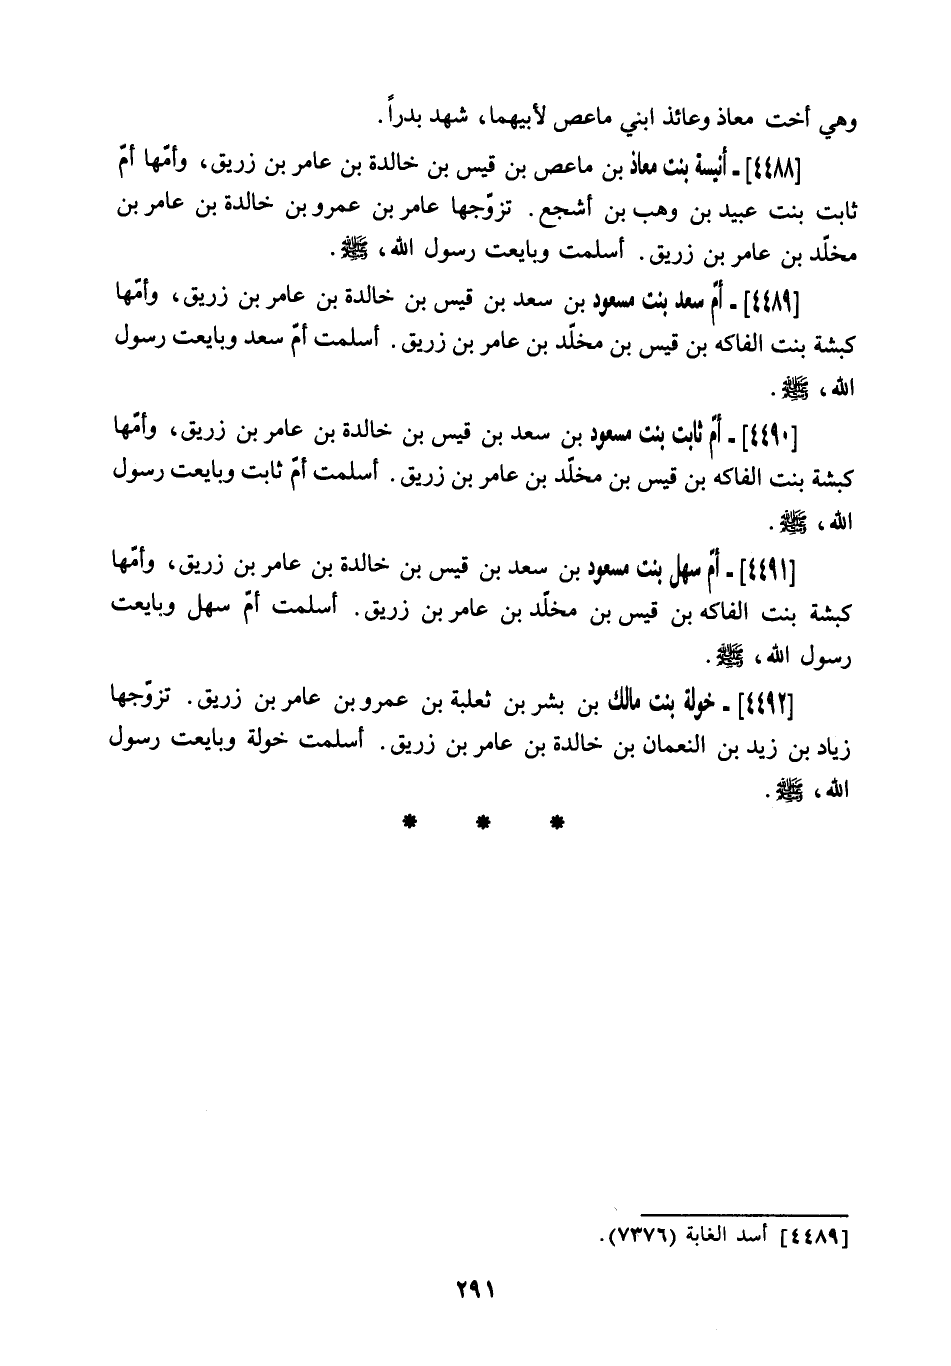 وهي أخت معاذ وعائذ ابني ماعص لأبيهما، شهد بدراً.
[٤٤٨٨] ـ أنيسة بنت معاذ بن ماعص بن قيس بن خالدة بن عامر بن زريق، وأمّها أمّ
ثابت بنت عبيد بن وهب بن أشجع. تزوّجها عامر بن عمرو بن خالدة بن عامر بن
مخلّد بن عامر بن زريق. أسلمت وبايعت رسول الله، ﷺ.
[٤٤٨٩] ـ أمّ سعد بنت مسعود بن سعد بن قيس بن خالدة بن عامر بن زريق، وأمّها
كبشة بنت الفاكه بن قيس بن مخلّد بن عامر بن زريق. أسلمت أمّ سعد وبايعت رسول
الله، ﷺ.
[٤٤٩٠] ـ أمّ ثابت بنت مسعود بن سعد بن قيس بن خالدة بن عامر بن زريق، وأمّها
كبشة بنت الفاكه بن قيس بن مخلّد بن عامر بن زريق. أسلمت أمّ ثابت وبايعت رسول
الله، ﷺ.
[٤٤٩١] ـ أمّ سهل بنت مسعود بن سعد بن قيس بن خالدة بن عامر بن زريق، وأمّها
كبشة بنت الفاكه بن قيس بن مخلّد بن عامر بن زريق. أسلمت أمّ سهل وبايعت
رسول الله، ﷺ.
[٤٤٩٢] ـ خولة بنت مالك بن بشر بن ثعلبة بن عمرو بن عامر بن زريق. تزوّجها
زياد بن زيد بن النعمان بن خالدة بن عامر بن زريق. أسلمت خولة وبايعت رسول
الله، ﷺ.
* * *
[٤٤٨٩] أسد الغابة (٧٣٧٦).
٢٩١